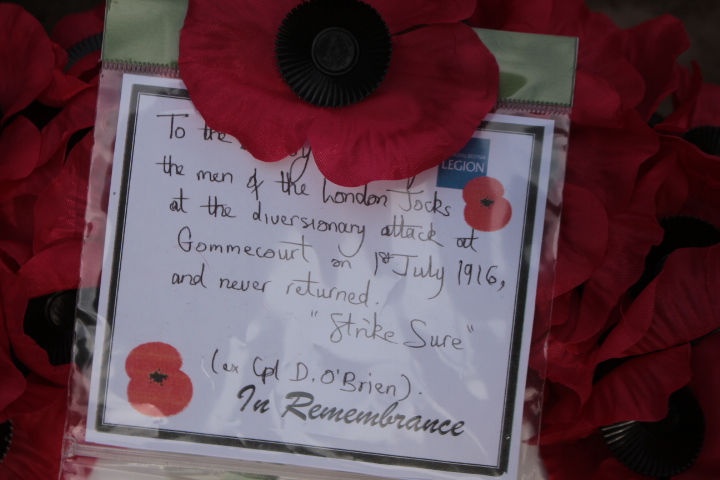 To the
LEGION
the men of the London Jocks
at the diversionary attack at
Gommecourt on 1st July 1916,
and never returned.
"Strike Sure"
(ex Cpl D. O'Brien).
In Remembrance